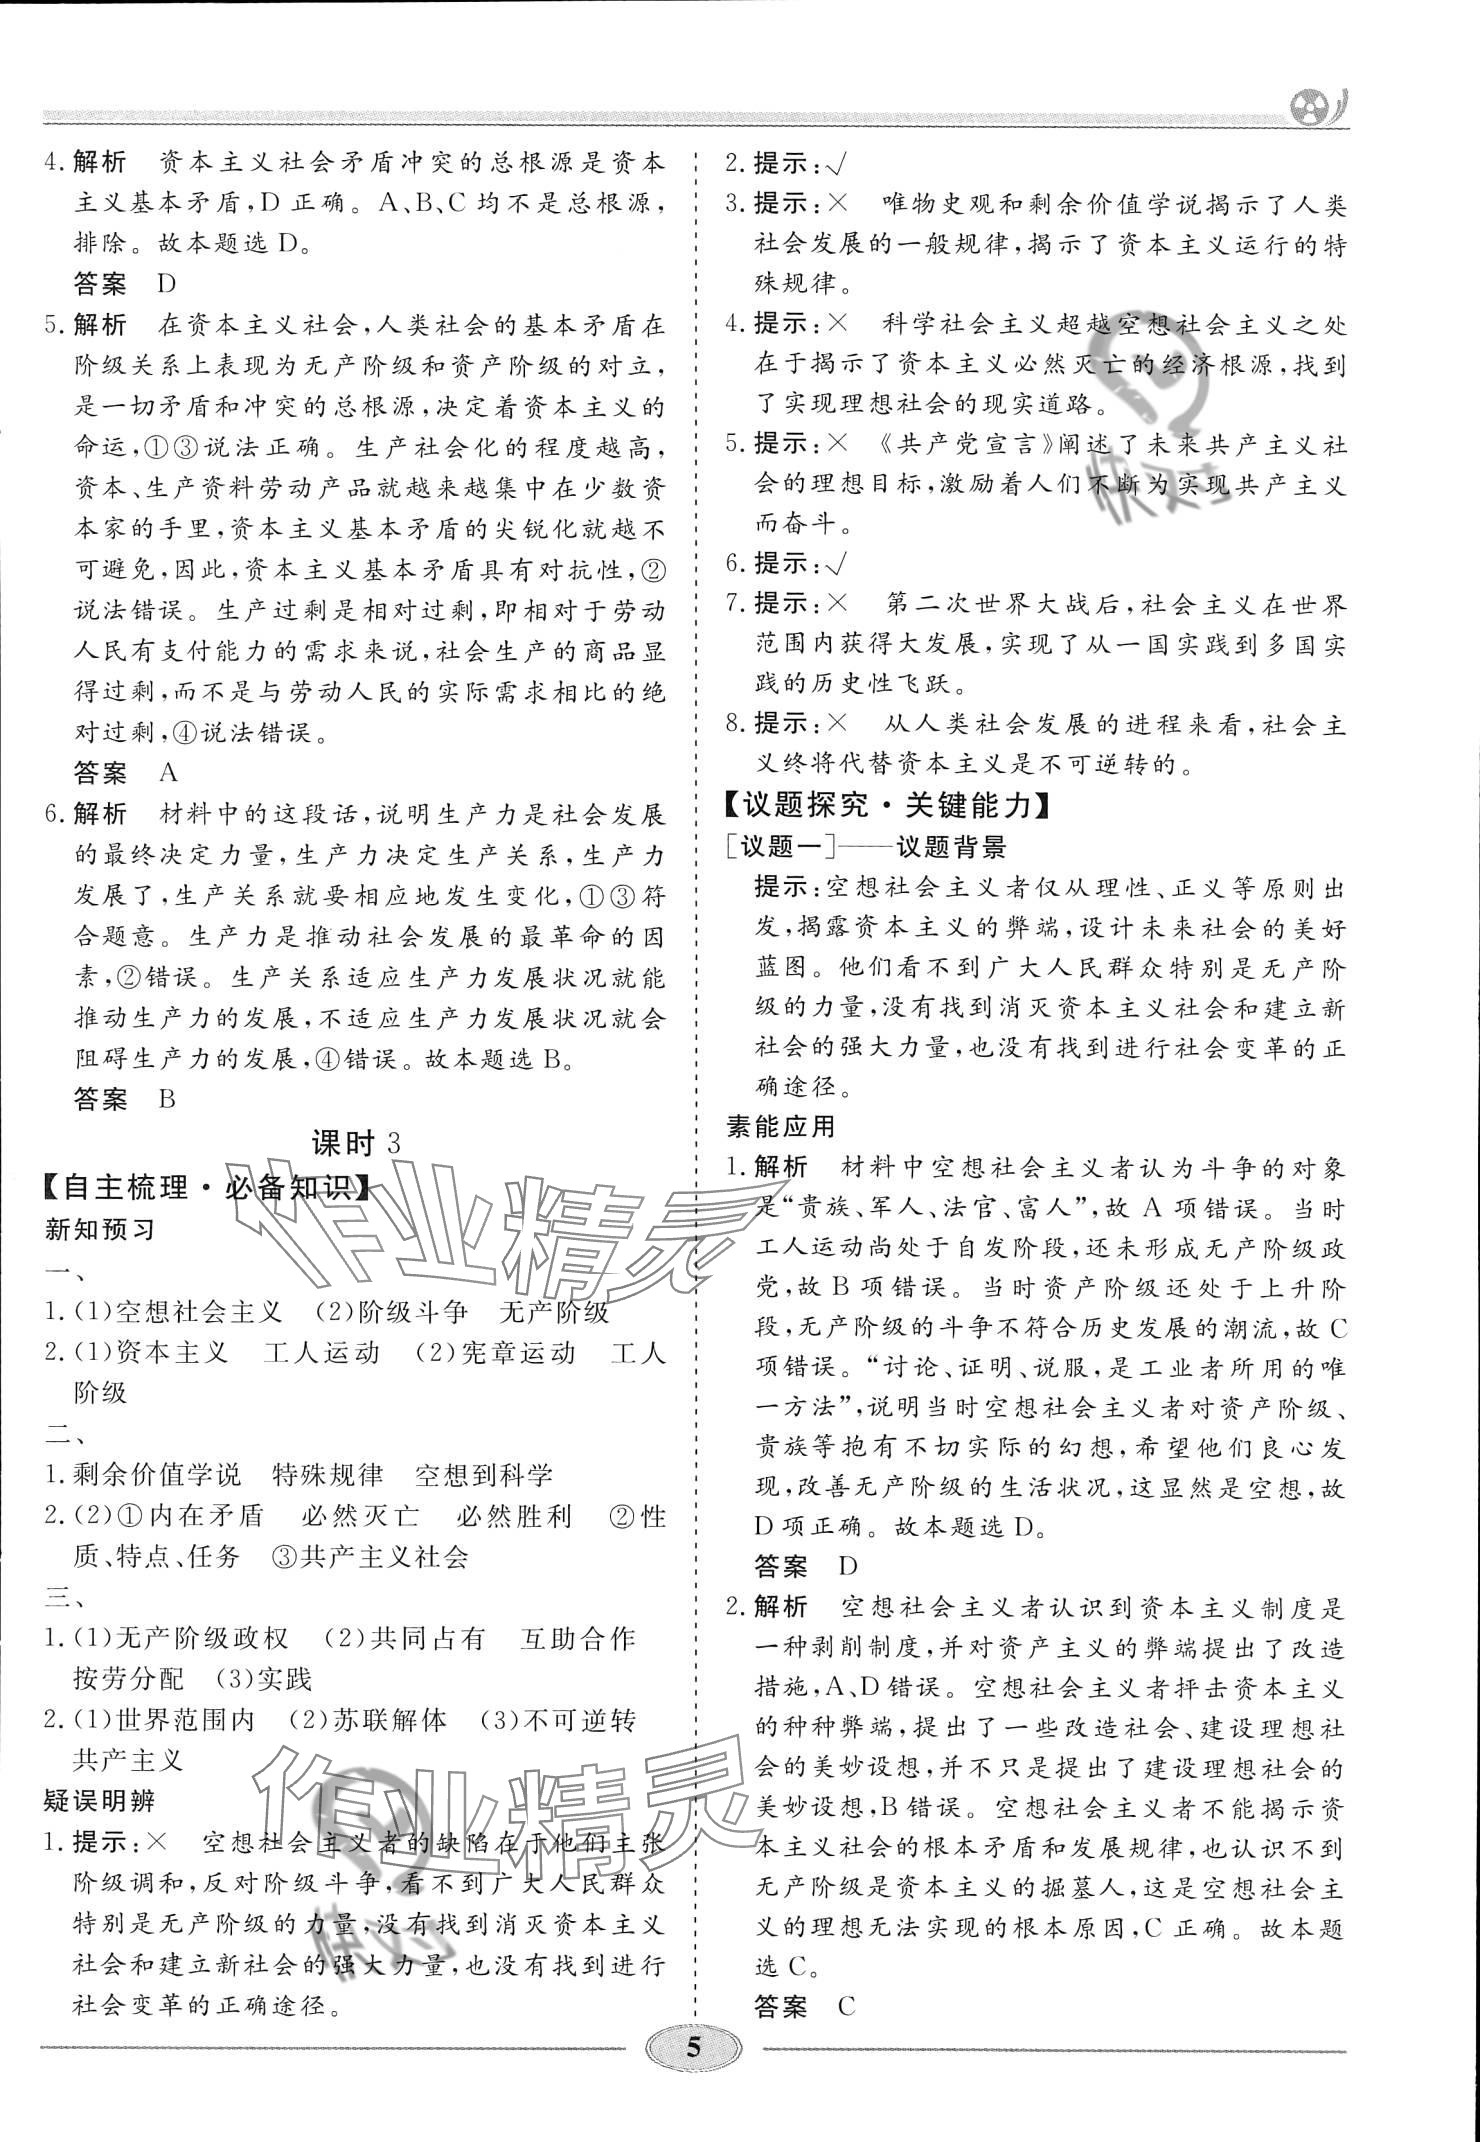 4. 解析　资本主义社会矛盾冲突的总根源是资本
主义基本矛盾,D正确。A、B、C均不是总根源,
排除。故本题选D。
答案　D
5. 解析　在资本主义社会,人类社会的基本矛盾在
阶级关系上表现为无产阶级和资产阶级的对立,
是一切矛盾和冲突的总根源,决定着资本主义的
命运,①③说法正确。生产社会化的程度越高,
资本、生产资料劳动产品就越来越集中在少数资
本家的手里,资本主义基本矛盾的尖锐化就越不
可避免,因此,资本主义基本矛盾具有对抗性,②
说法错误。生产过剩是相对过剩,即相对于劳动
人民有支付能力的需求来说,社会生产的商品显
得过剩,而不是与劳动人民的实际需求相比的绝
对过剩,④说法错误。
答案　A
6. 解析　材料中的这段话,说明生产力是社会发展
的最终决定力量,生产力决定生产关系,生产力
发展了,生产关系就要相应地发生变化,①③符
合题意。生产力是推动社会发展的最革命的因
素,②错误。生产关系适应生产力发展状况就能
推动生产力的发展,不适应生产力发展状况就会
阻碍生产力的发展,④错误。故本题选B。
答案　B
课时3
【自主梳理·必备知识】
新知预习
一、
1. (1)空想社会主义　(2)阶级斗争　无产阶级
2. (1)资本主义　工人运动　(2)宪章运动　工人
阶级
二、
1. 剩余价值学说　特殊规律　空想到科学
2. (2)①内在矛盾　必然灭亡　必然胜利　②性
质、特点、任务　③共产主义社会
三、
1. (1)无产阶级政权　(2)共同占有　互助合作
按劳分配　(3)实践
2. (1)世界范围内　(2)苏联解体　(3)不可逆转
共产主义
疑误明辨
1. 提示:×　空想社会主义者的缺陷在于他们主张
阶级调和,反对阶级斗争,看不到广大人民群众
特别是无产阶级的力量,没有找到消灭资本主义
社会和建立新社会的强大力量,也没有找到进行
社会变革的正确途径。
2. 提示:√
3. 提示:×　唯物史观和剩余价值学说揭示了人类
社会发展的一般规律,揭示了资本主义运行的特
殊规律。
4. 提示:×　科学社会主义超越空想社会主义之处
在于揭示了资本主义必然灭亡的经济根源,找到
了实现理想社会的现实道路。
5. 提示:×　《共产党宣言》阐述了未来共产主义社
会的理想目标,激励着人们不断为实现共产主义
而奋斗。
6. 提示:√
7. 提示:×　第二次世界大战后,社会主义在世界
范围内获得大发展,实现了从一国实践到多国实
践的历史性飞跃。
8. 提示:×　从人类社会发展的进程来看,社会主
义终将代替资本主义是不可逆转的。
【议题探究·关键能力】
[议题一]——议题背景
提示:空想社会主义者仅从理性、正义等原则出
发,揭露资本主义的弊端,设计未来社会的美好
蓝图。他们看不到广大人民群众特别是无产阶
级的力量,没有找到消灭资本主义社会和建立新
社会的强大力量,也没有找到进行社会变革的正
确途径。
素能应用
1. 解析　材料中空想社会主义者认为斗争的对象
是“贵族、军人、法官、富人”,故A项错误。当时
工人运动尚处于自发阶段,还未形成无产阶级政
党,故B项错误。当时资产阶级还处于上升阶
段,无产阶级的斗争不符合历史发展的潮流,故C
项错误。“讨论、证明、说服,是工业者所用的唯
一方法”,说明当时空想社会主义者对资产阶级、
贵族等抱有不切实际的幻想,希望他们良心发
现,改善无产阶级的生活状况,这显然是空想,故
D项正确。故本题选D。
答案　D
2. 解析　空想社会主义者认识到资本主义制度是
一种剥削制度,并对资产主义的弊端提出了改造
措施,A、D错误。空想社会主义者抨击资本主义
的种种弊端,提出了一些改造社会、建设理想社
会的美妙设想,并不只是提出了建设理想社会的
美妙设想,B错误。空想社会主义者不能揭示资
本主义社会的根本矛盾和发展规律,也认识不到
无产阶级是资本主义的掘墓人,这是空想社会主
义的理想无法实现的根本原因,C正确。故本题
选C。
答案　C
作业精灵
作业精灵
快对
快对
5